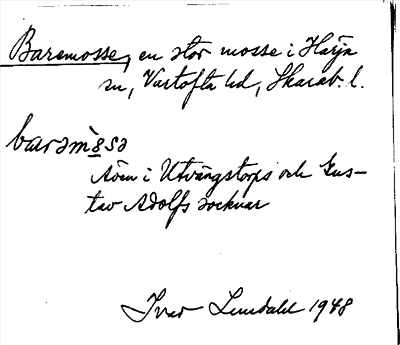 Baremosse, en stor mosse i Härja
sn, Vartofta hd, Skarab. l.
barəm`8sə
även i Utvängstorps och Gus-
tav Adolfs socknar
Ivar Lundahl 1948